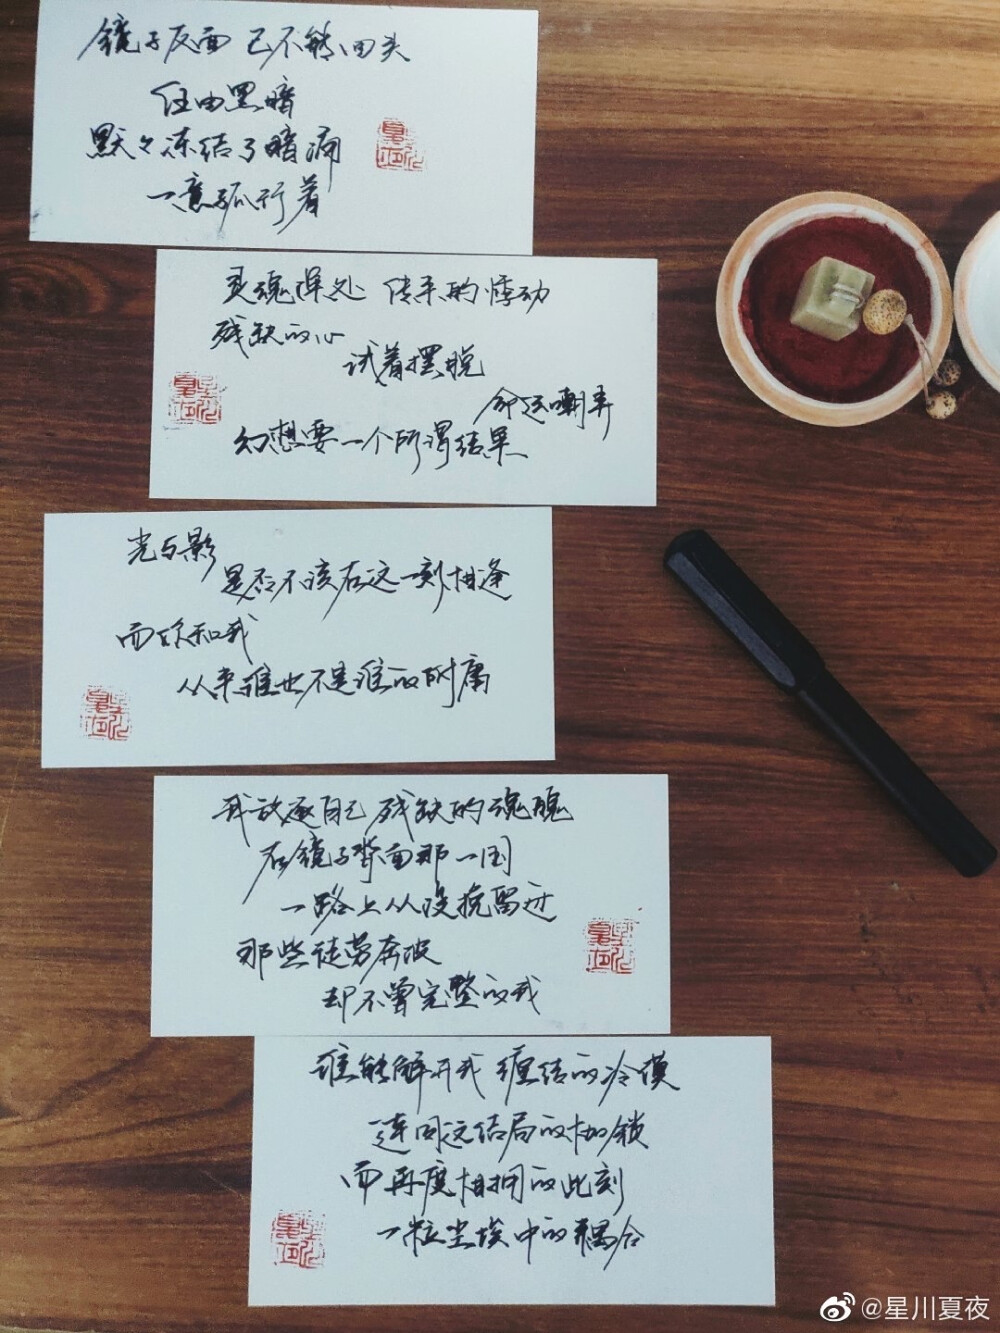 镜子反面 已不能回头
任由黑暗
默々冻结了暗涌
一意孤行着
灵魂深处 传来的悸动
残缺的心
试着摆脱
命运嘲弄
幻想要一个所谓结果
光与影
是否不该在这一刻相逢
而你和我
从来谁也不是谁的附庸
我放逐自己 残缺的魂魄
在镜子背面那一国
一路上从没挽留过
那些徒劳奔波
却不曾完整的我
谁能解开我 缠结的冷漠
连同这结局的枷锁
而再度相拥的此刻
一粒尘埃中的耦合
@星川夏夜